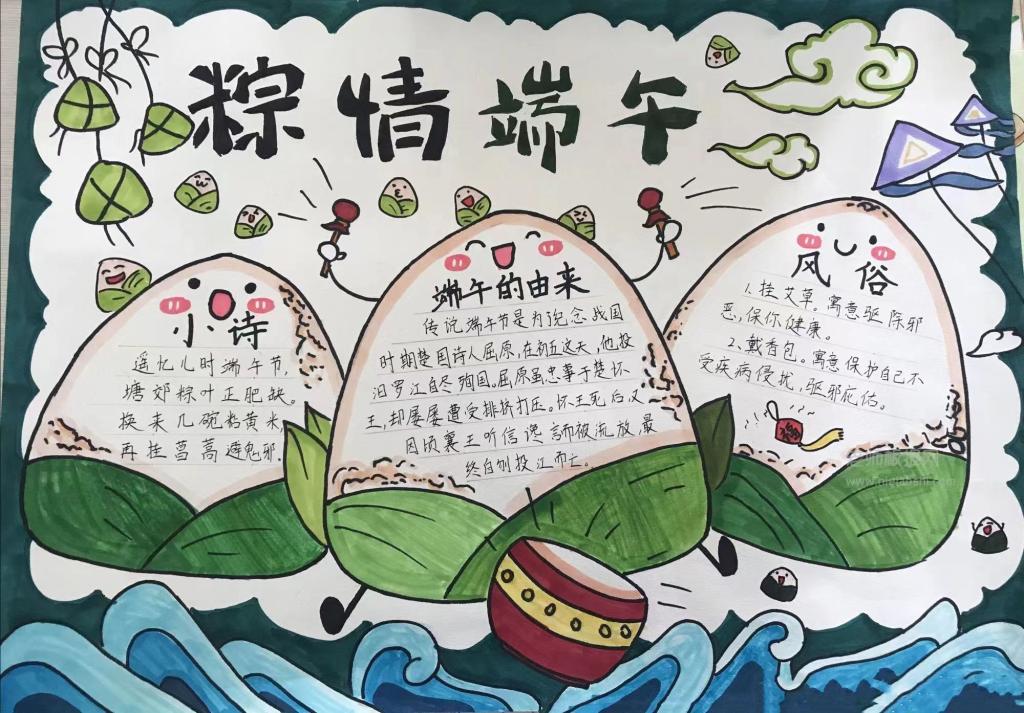 粽情端午
小诗
遥忆儿时端午节,
塘郊粽叶正肥缺。
换来几碗粘黄米,
再挂菖蒿避鬼邪.
端午的由来
传说端午节是为了纪念战国
时期楚国诗人屈原,在初五这天,他投
汨罗江自尽殉国。屈原虽忠事于楚怀
王,却屡屡遭受排挤打压。怀王死后又
因顷襄王听信谗言而被流放,最
终自刎投江而亡。
风俗
1.挂艾草。寓意驱除邪
恶,保你健康。
2.戴香包。寓意保护自己不
受疾病侵扰,驱邪